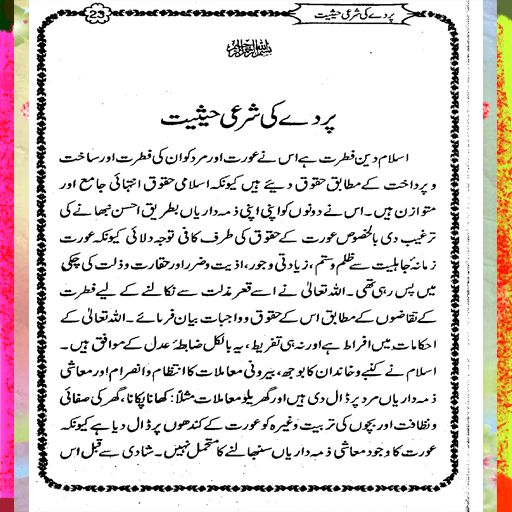 پردے کی شرعی حیثیت
23
بسم اللہ الرحمن الرحیم
پردے کی شرعی حیثیت
اسلام دین فطرت ہے اس نے عورت اور مرد کو ان کی فطرت اور ساخت
و پرداخت کے مطابق حقوق دیئے ہیں کیونکہ اسلامی حقوق انتہائی جامع اور
متوازن ہیں۔ اس نے دونوں کو اپنی اپنی ذمہ داریاں بطریق احسن نبھانے کی
ترغیب دی بالخصوص عورت کے حقوق کی طرف کافی توجہ دلائی کیونکہ عورت
زمانۂ جاہلیت سے ظلم و ستم، زیادتی و جور، اذیت و ضرر اور حقارت و ذلت کی چکی
میں پس رہی تھی۔ اللہ تعالیٰ نے اسے قعر مذلت سے نکالنے کے لیے فطرت
کے تقاضوں کے مطابق اس کے حقوق و واجبات بیان فرمائے۔ اللہ تعالیٰ کے
احکامات میں افراط ہے اور نہ ہی تفریط، یہ بالکل ضابطۂ عدل کے موافق ہیں۔
اسلام نے کنبے و خاندان کا بوجھ، بیرونی معاملات کا انتظام و انصرام اور معاشی
ذمہ داریاں مرد پر ڈال دی ہیں اور گھریلو معاملات مثلاً: کھانا پکانا، گھر کی صفائی
و نظافت اور بچوں کی تربیت وغیرہ کو عورت کے کندھوں پر ڈال دیا ہے کیونکہ
عورت کا وجود معاشی ذمہ داریاں سنبھالنے کا متحمل نہیں۔ شادی سے قبل اس